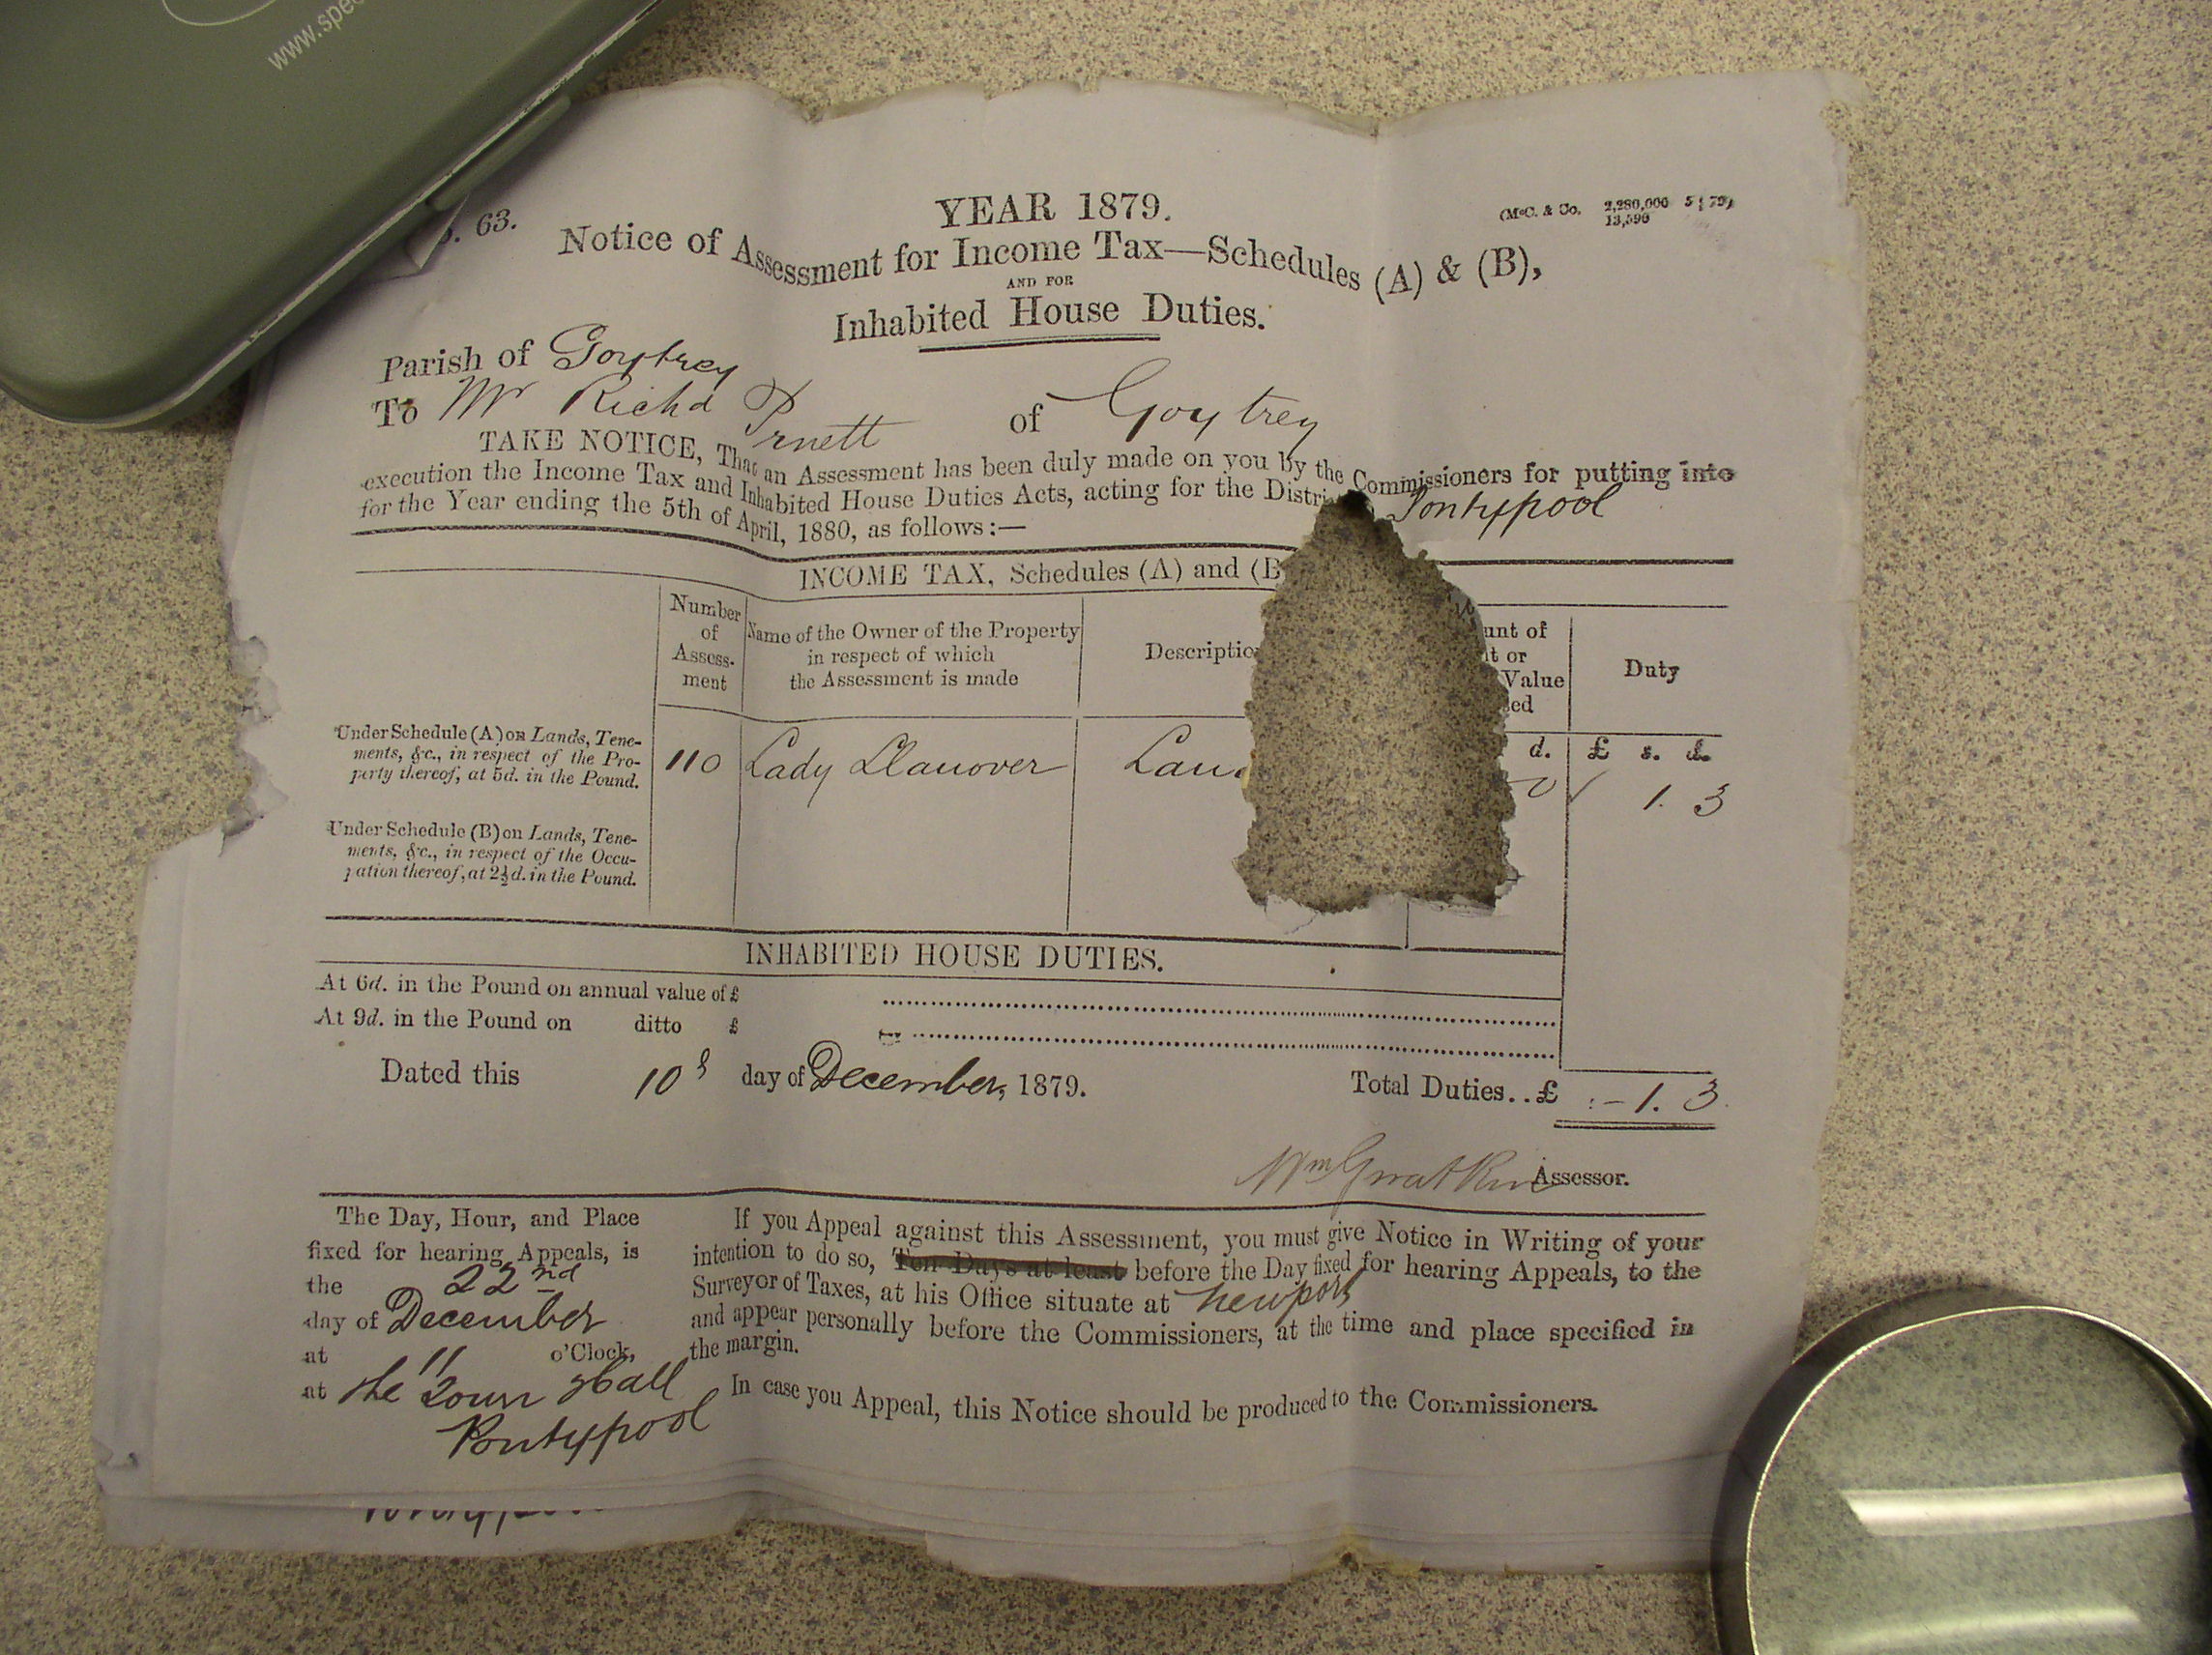 www.spec
63.
YEAR 1879.
(McC. & Co. 2,280,000 5 | 79)
13,590
Notice of Assessment for Income Tax—Schedules (A) & (B),
AND FOR
Inhabited House Duties.
Parish of Goytrey
To Mr Richd of Goytrey
TAKE NOTICE, That an Assessment has been duly made on you by the Commissioners for putting into
execution the Income Tax and Inhabited House Duties Acts, acting for the Distri Pontypool
for the Year ending the 5th of April, 1880, as follows:—
INCOME TAX, Schedules (A) and (B
Number
of
Assess-
ment
Name of the Owner of the Property
in respect of which
the Assessment is made
Descriptio
unt of
t or
Value
ed
Duty
Under Schedule (A) on Lands, Tene-
ments, &c., in respect of the Pro-
perty thereof, at 5d. in the Pound.
110 Lady Llanover Lan
d. £ s. d.
0 1. 3
Under Schedule (B) on Lands, Tene-
ments, &c., in respect of the Occu-
pation thereof, at 2½d. in the Pound.
INHABITED HOUSE DUTIES.
At 6d. in the Pound on annual value of £
At 9d. in the Pound on ditto £
Dated this 10 day of December, 1879.
Total Duties.. £ :- 1. 3
Wm Assessor.
The Day, Hour, and Place
fixed for hearing Appeals, is
the 22nd
day of December
at 11 o'Clock,
at the Town Hall
Pontypool
If you Appeal against this Assessment, you must give Notice in Writing of your
intention to do so, Ten Days at least before the Day fixed for hearing Appeals, to the
Surveyor of Taxes, at his Office situate at Newport
and appear personally before the Commissioners, at the time and place specified in
the margin.
In case you Appeal, this Notice should be produced to the Commissioners.